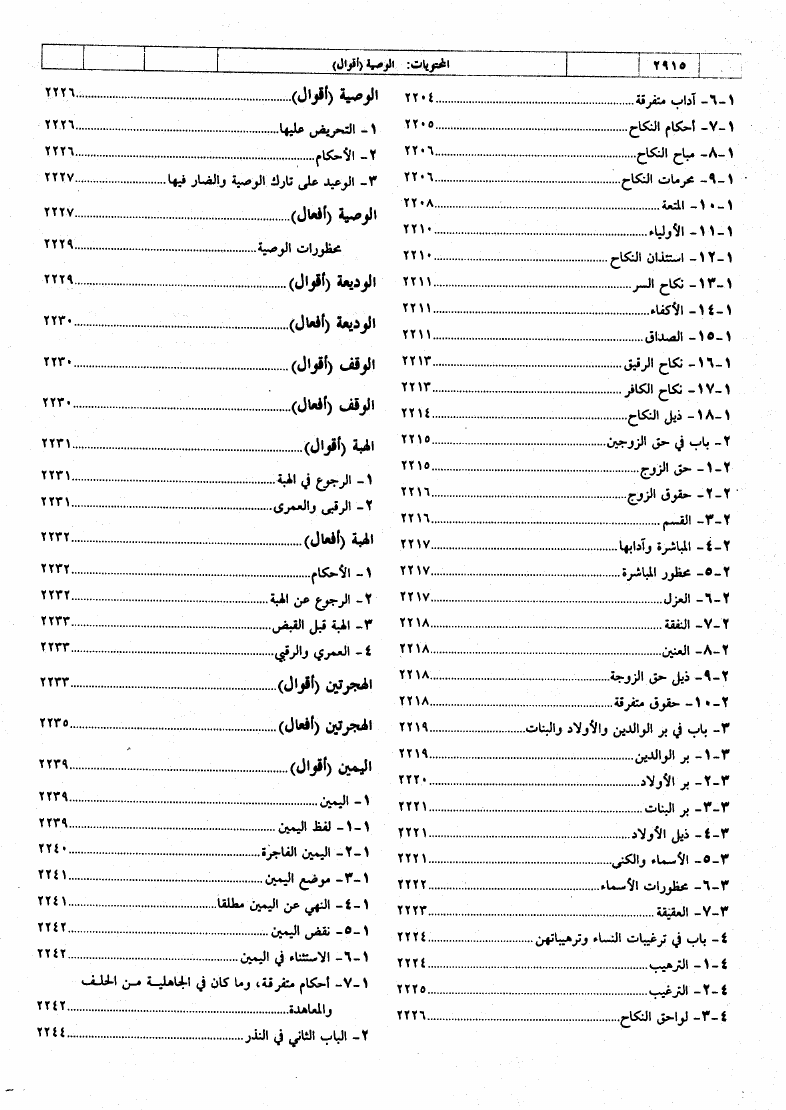 ٢٩١٥ المحتويات: الوصية (أقوال)
١-٦- آداب متفرقة ..... ٢٢٠٤
١-٧- أحكام النكاح ..... ٢٢٠٥
١-٨- مباح النكاح ..... ٢٢٠٦
١-٩- محرمات النكاح ..... ٢٢٠٦
١-١٠- المتعة ..... ٢٢٠٨
١-١١- الأولياء ..... ٢٢١٠
١-١٢- استئذان النكاح ..... ٢٢١٠
١-١٣- نكاح السر ..... ٢٢١١
١-١٤- الأكفاء ..... ٢٢١١
١-١٥- الصداق ..... ٢٢١١
١-١٦- نكاح الرقيق ..... ٢٢١٣
١-١٧- نكاح الكافر ..... ٢٢١٣
١-١٨- ذيل النكاح ..... ٢٢١٤
٢- باب في حق الزوجين ..... ٢٢١٥
٢-١- حق الزوج ..... ٢٢١٥
٢-٢- حقوق الزوج ..... ٢٢١٦
٢-٣- القسم ..... ٢٢١٦
٢-٤- المباشرة وآدابها ..... ٢٢١٧
٢-٥- محظور المباشرة ..... ٢٢١٧
٢-٦- العزل ..... ٢٢١٧
٢-٧- النفقة ..... ٢٢١٨
٢-٨- العنين ..... ٢٢١٨
٢-٩- ذيل حق الزوجة ..... ٢٢١٨
٢-١٠- حقوق متفرقة ..... ٢٢١٨
٣- باب في بر الوالدين والأولاد والبنات ..... ٢٢١٩
٣-١- بر الوالدين ..... ٢٢١٩
٣-٢- بر الأولاد ..... ٢٢٢٠
٣-٣- بر البنات ..... ٢٢٢١
٣-٤- ذيل الأولاد ..... ٢٢٢١
٣-٥- الأسماء والكنى ..... ٢٢٢١
٣-٦- محظورات الأسماء ..... ٢٢٢٢
٣-٧- العقيقة ..... ٢٢٢٣
٤- باب في ترغيبات النساء وترهيباتهن ..... ٢٢٢٤
٤-١- الترهيب ..... ٢٢٢٤
٤-٢- الترغيب ..... ٢٢٢٥
٤-٣- لواحق النكاح ..... ٢٢٢٦
الوصية (أقوال) ..... ٢٢٢٦
١- التحريض عليها ..... ٢٢٢٦
٢- الأحكام ..... ٢٢٢٦
٣- الوعيد على تارك الوصية والضار فيها ..... ٢٢٢٧
الوصية (أفعال) ..... ٢٢٢٧
محظورات الوصية ..... ٢٢٢٩
الوديعة (أقوال) ..... ٢٢٢٩
الوديعة (أفعال) ..... ٢٢٣٠
الوقف (أقوال) ..... ٢٢٣٠
الوقف (أفعال) ..... ٢٢٣٠
الهبة (أقوال) ..... ٢٢٣١
١- الرجوع في الهبة ..... ٢٢٣١
٢- الرقبى والعمرى ..... ٢٢٣١
الهبة (أفعال) ..... ٢٢٣٢
١- الأحكام ..... ٢٢٣٢
٢- الرجوع عن الهبة ..... ٢٢٣٢
٣- الهبة قبل القبض ..... ٢٢٣٣
٤- العمري والرقبي ..... ٢٢٣٣
الهجرتين (أقوال) ..... ٢٢٣٣
الهجرتين (أفعال) ..... ٢٢٣٥
اليمين (أقوال) ..... ٢٢٣٩
١- اليمين ..... ٢٢٣٩
١-١- لفظ اليمين ..... ٢٢٣٩
١-٢- اليمين الفاجرة ..... ٢٢٤٠
١-٣- موضع اليمين ..... ٢٢٤١
١-٤- النهي عن اليمين مطلقا ..... ٢٢٤١
١-٥- نقض اليمين ..... ٢٢٤٢
١-٦- الاستثناء في اليمين ..... ٢٢٤٢
١-٧- أحكام متفرقة، وما كان في الجاهلية من الحلف
والمعاهدة ..... ٢٢٤٢
٢- الباب الثاني في النذر ..... ٢٢٤٤